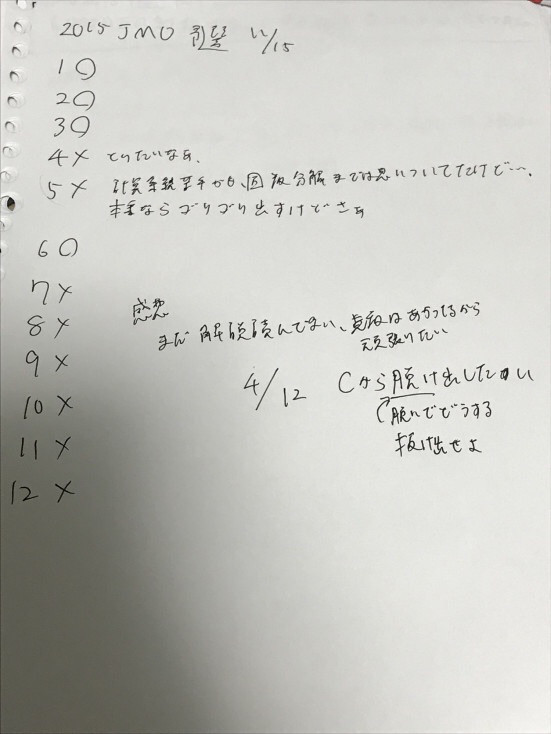 2015 JMO 予選 11/15
1 ○
2 ○
3 ○
4 × とりたいなぁ、
5 × 計算系統苦手かも、因数分解までは思いついてたけど…、
本番ならゴリゴリ出すけどさぁ
6 ○
7 ×
感想
8 × まだ解説読んでない、
頑張りたい
9 ×
4/12 Cから脱け出したい
10 × 脱いでどうする
11 × 抜け出せよ
12 ×